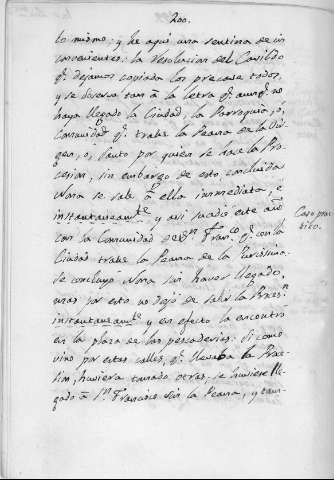 200.
lo mismo; y he aqui una sentina de in
convenientes: la resolucion del Cavildo
q.e dejamos copiada los precave todos,
y se observa tan a la letra q.e aunq.e no
haya llegado la Ciudad, la Parroquia, ó,
Comunidad q.e trahe la Peana de la Vir
gen, ó, Santo por quien se hace la Pro
cesion, sin embargo de esto, concluida
Nona se sale p.r ella inmediata, é
instantaneam.te y asi sucedió este año
con la Comunidad de S.n Fran.co q.e con la
Ciudad trahe la Peana de la Purissima.
Se concluyó Nona sin haver llegado,
mas por esto no dejó de salir la Proces.n
instantaneam.te y en efecto la encontró
en la plaza de las pescaderias: si como
vino por estas calles, q.e llevaba la Proce
sion, huviera tomado otras, se huviese lle
gado a S.n Francisco sin la Peana, y tam-
Caso prac
tico.